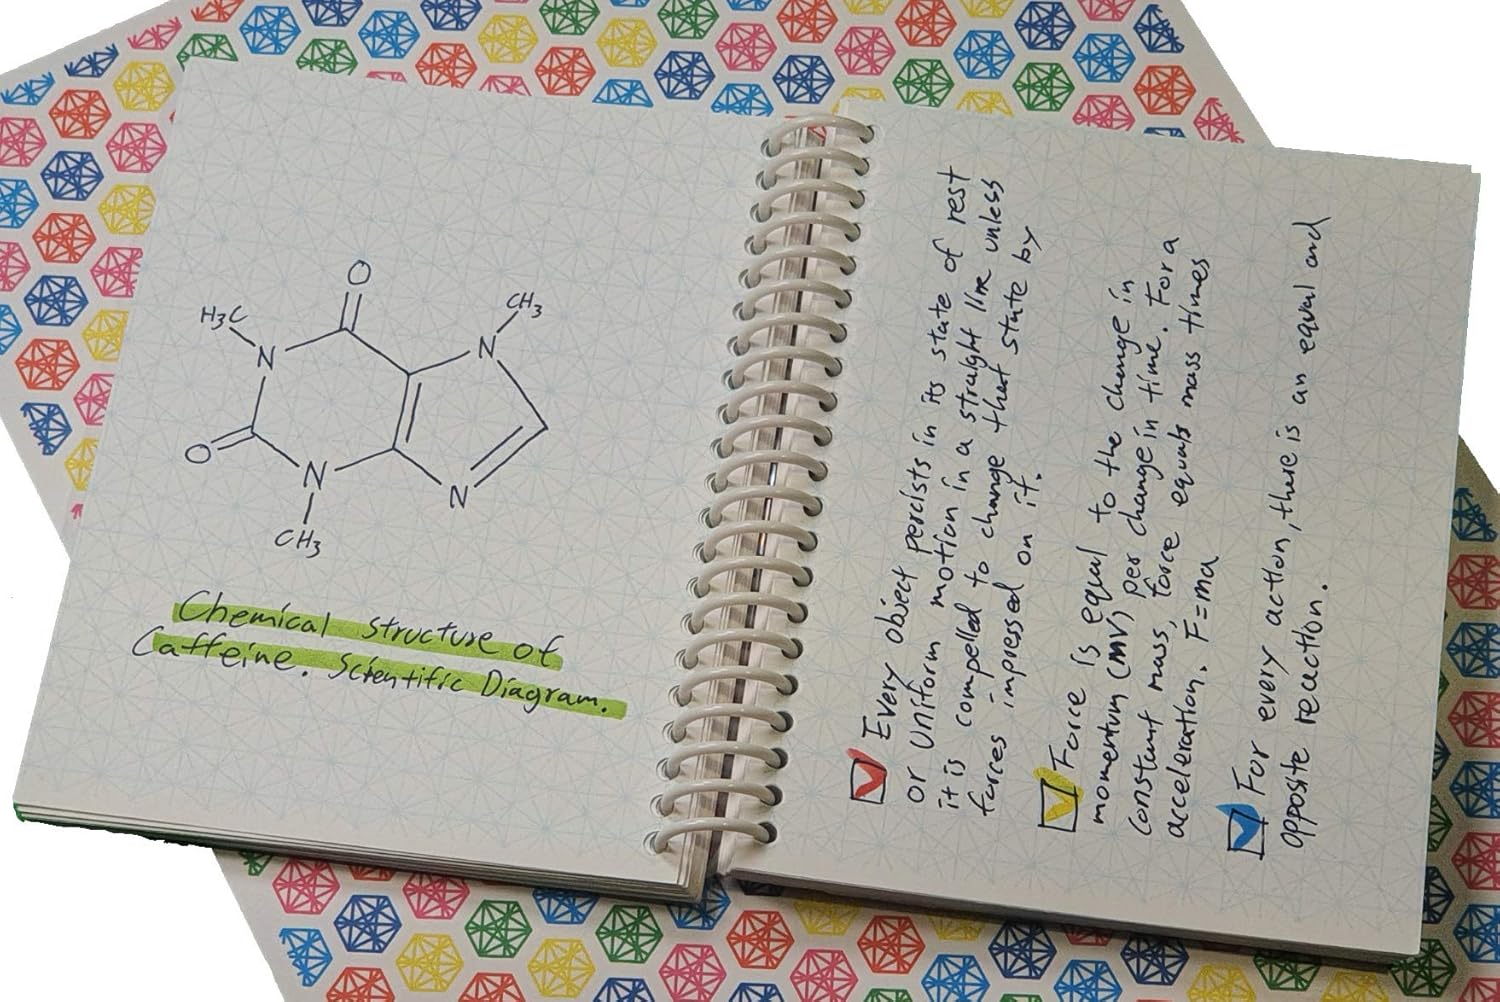 O
H3C
CH3
N
N
O
N
N
CH3
Chemical structure of
Caffeine. Scientific Diagram.
Every object percists in its state of rest
or uniform motion in a straight line unless
it is compelled to change that state by
forces impressed on it.
Force is equal to the change in
momentum (mV) per change in time. For a
constant mass, force equals mass times
acceleration. F=ma
For every action, there is an equal and
opposite reaction.